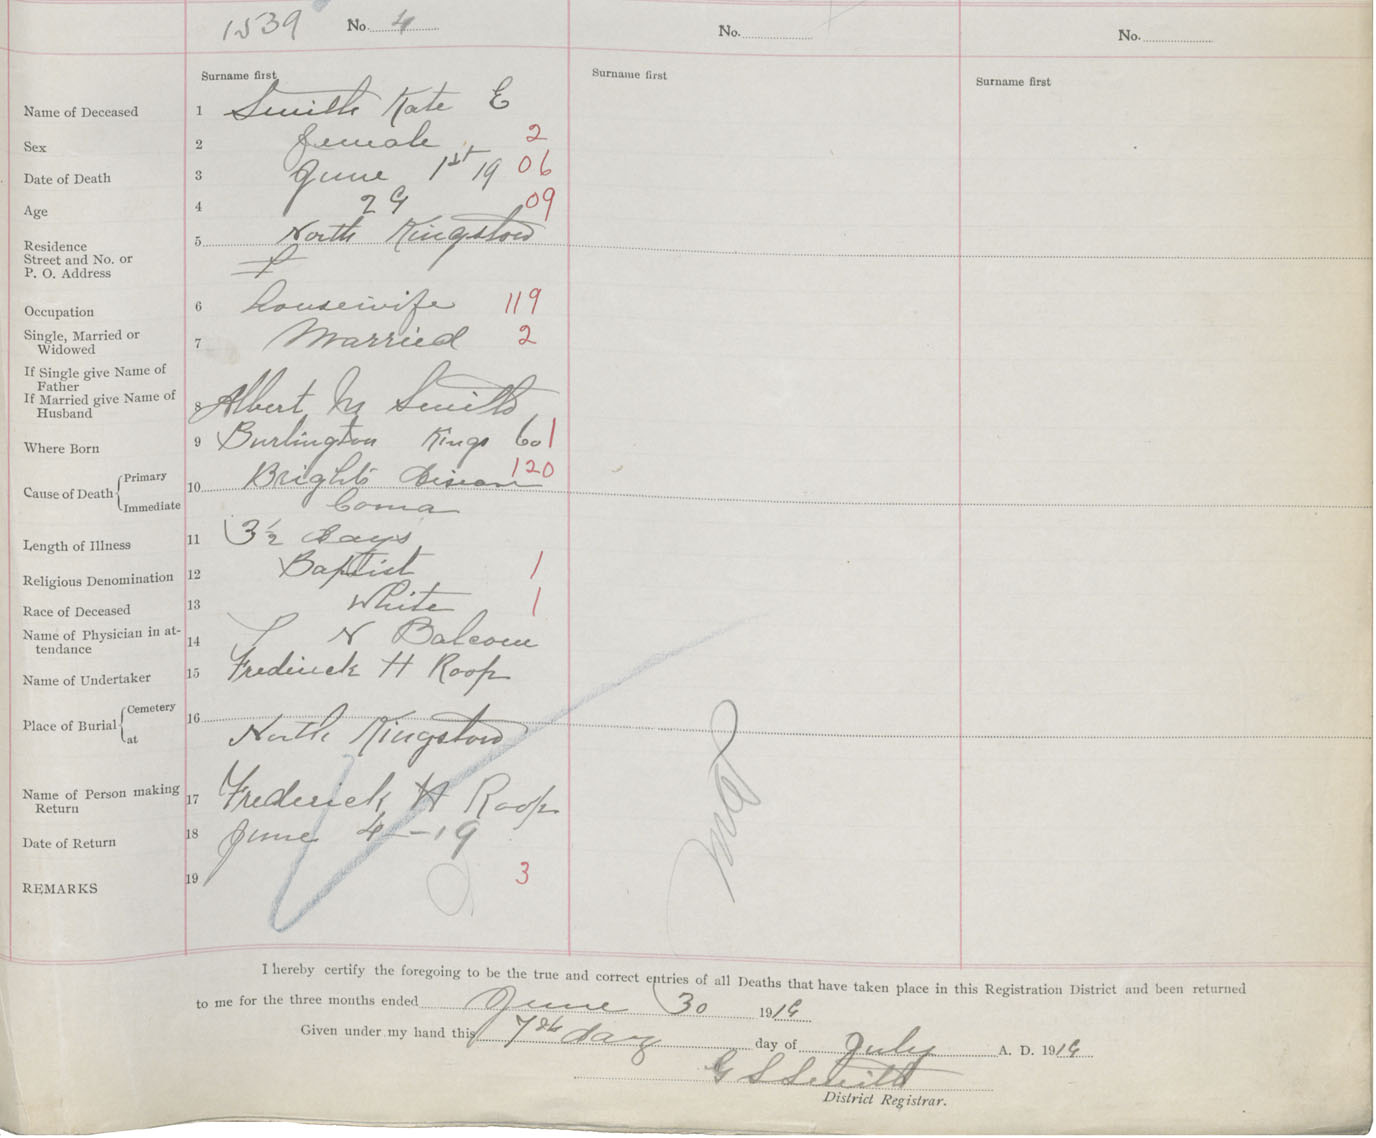 1539 No. 4 No. No.
Surname first Surname first Surname first
Name of Deceased 1 Smith Kate E
Sex 2 female 2
Date of Death 3 June 1st 19 06
Age 4 29 09
Residence 5 North Kingston
Street and No. or
P. O. Address
Occupation 6 housewife 119
Single, Married or
Widowed 7 Married 2
If Single give Name of
Father
If Married give Name of
Husband 8 Albert M Smith
Where Born 9 Burlington Kings Co 1
Cause of Death { Primary 10 Brights disease 120
Immediate Coma
Length of Illness 11 3½ days
Religious Denomination 12 Baptist 1
Race of Deceased 13 White 1
Name of Physician in at-
tendance 14 N Balcom
Name of Undertaker 15 Frederick H Roop
Place of Burial { Cemetery 16
at North Kingston
Name of Person making
Return 17 Frederick H Roop
Date of Return 18 June 4 - 19
REMARKS 19 3
I hereby certify the foregoing to be the true and correct entries of all Deaths that have taken place in this Registration District and been returned
to me for the three months ended June 30 1919
Given under my hand this 7th day day of July A. D. 1919
G S Smith
District Registrar.